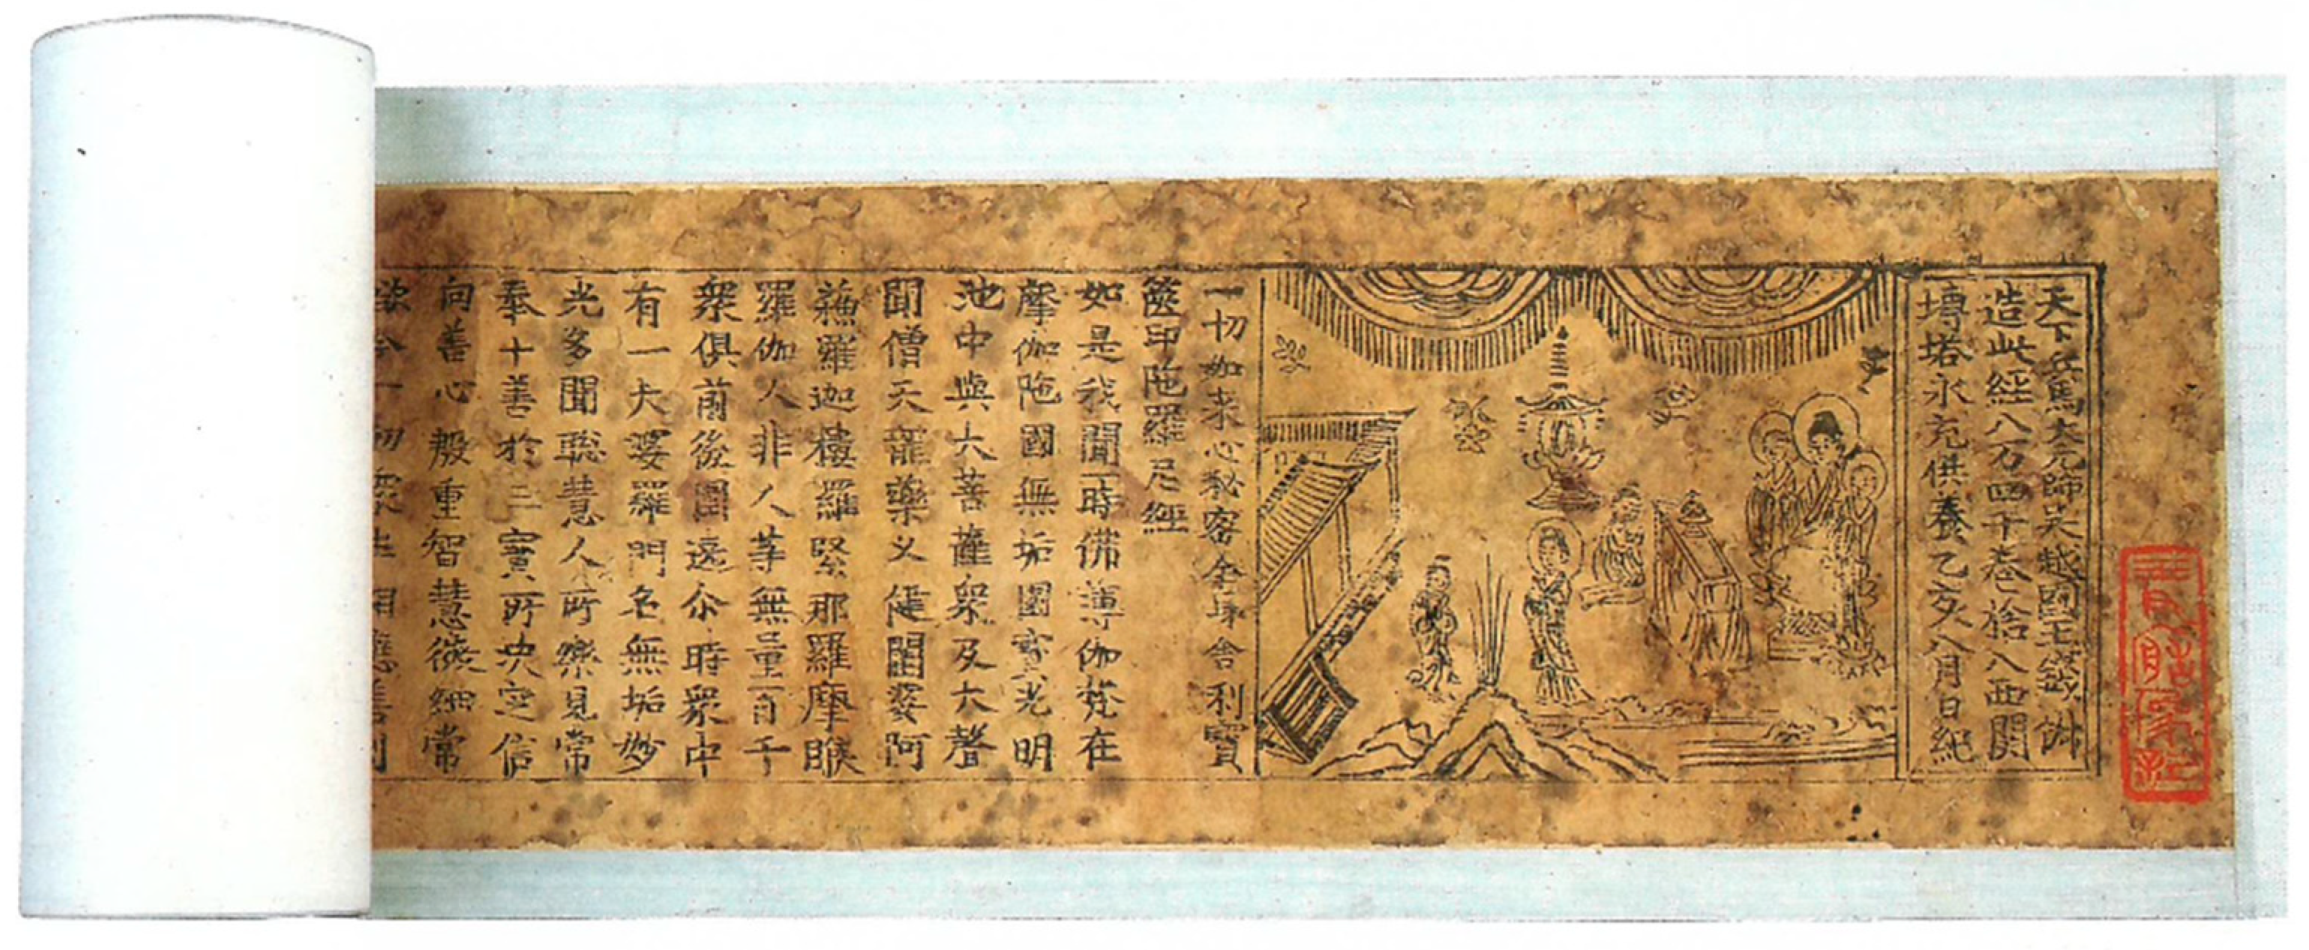 天下兵馬大元帥吳越國王錢俶
造此經八万四千卷捨入西關
塼塔永充供養乙亥八月日紀
一切如來心秘密全身舍利寶
篋印陁羅尼經
如是我聞一時佛薄伽梵在
摩伽陁國無垢園寶光明
池中與大菩薩衆及大聲
聞僧天龍藥叉健闥婆阿
蘓羅迦樓羅緊那羅摩睺
羅伽人非人等無量百千
衆俱前後圍遶尒時衆中
有一大婆羅門名無垢妙
光多聞聰慧人所樂見常
奉十善於三寶所决定信
向善心殷重智慧微細常
欲令一切衆生相應善利